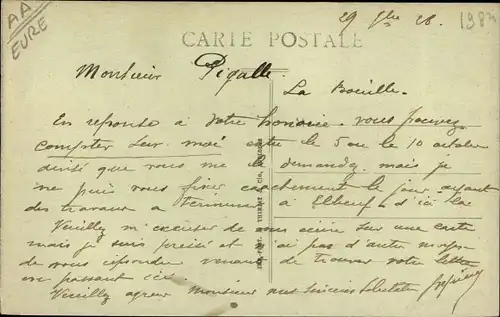 AA
EURE
29 7bre 28.
CARTE POSTALE
Monsieur Pigalle.
La Bouille.
En reponse à votre honorée. vous pouvez
compter sur moi entre le 5 ou le 10 octobre
que vous me le demandez. mais je
ne puis vous fixer exactement le jour, ayant
des travaux a terminer a Elbeuf d'ici la
Veuillez m'excuser de vous écrire sur une carte
mais je suis pressé et n'ai pas d'autre moyen
de vous répondre venant de trouver votre lettre
en passant ici.
Veuillez agreer Monsieur mes sincères salutations